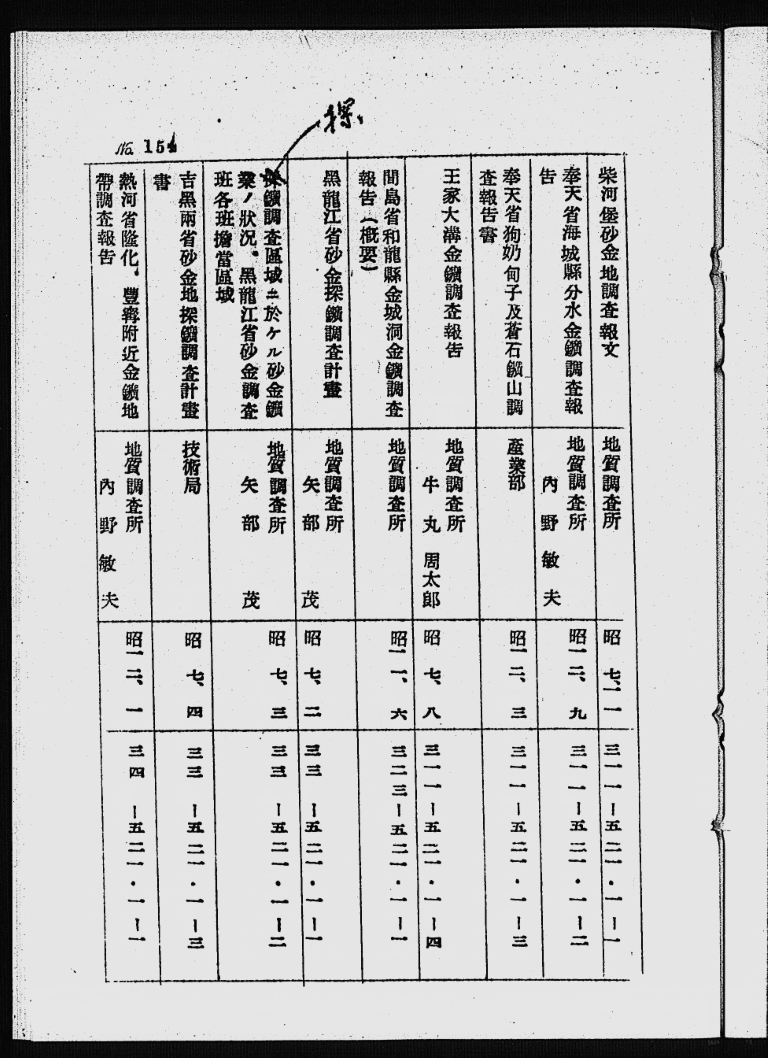 探
No. 154
柴河堡砂金地調査報文
地質調査所
昭 七、一一
三一一—五二一・一—一
奉天省海城縣分水金鑛調査報
告
地質調査所
內野敏夫
昭一二、九
三一一—五二一・一—二
奉天省狗奶甸子及蒼石鑛山調
查報告書
產業部
昭一二、三
三一一—五二一・一—三
王家大溝金鑛調査報告
地質調査所
牛丸周太郎
昭 七、八
三一一—五二一・一—四
間島省和龍縣金城洞金鑛調査
報告(概要)
地質調査所
昭一一、六
三二三—五二一・一—一
黑龍江省砂金探鑛調査計畫
地質調査所
矢部 茂
昭 七、二
三三—五二一・一—一
鑛調査區域ニ於ケル砂金鑛
業ノ狀況。黑龍江省砂金調査
班各班擔當區域
地質調査所
矢部 茂
昭 七、三
三三—五二一・一—二
吉黑兩省砂金地探鑛調査計畫
書
技術局
昭 七、四
三三—五二一・一—三
熱河省隆化、豐寧附近金鑛地
帶調査報告
地質調査所
內野敏夫
昭一二、一
三四—五二一・一—一